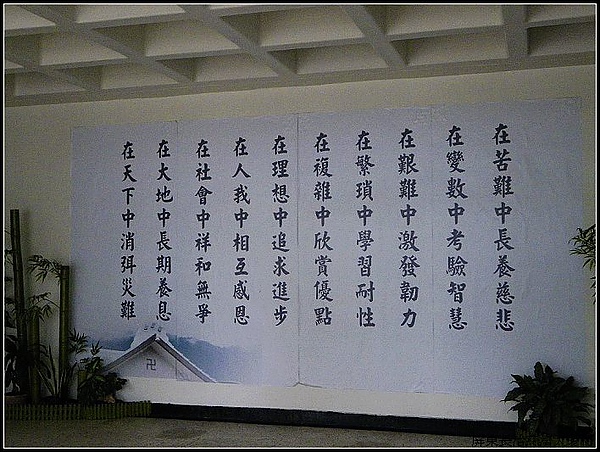 在苦難中長養慈悲
在變數中考驗智慧
在艱難中激發韌力
在繁瑣中學習耐性
在複雜中欣賞優點
在理想中追求進步
在人我中相互感恩
在社會中祥和無爭
在大地中長期養息
在天下中消弭災難
卍